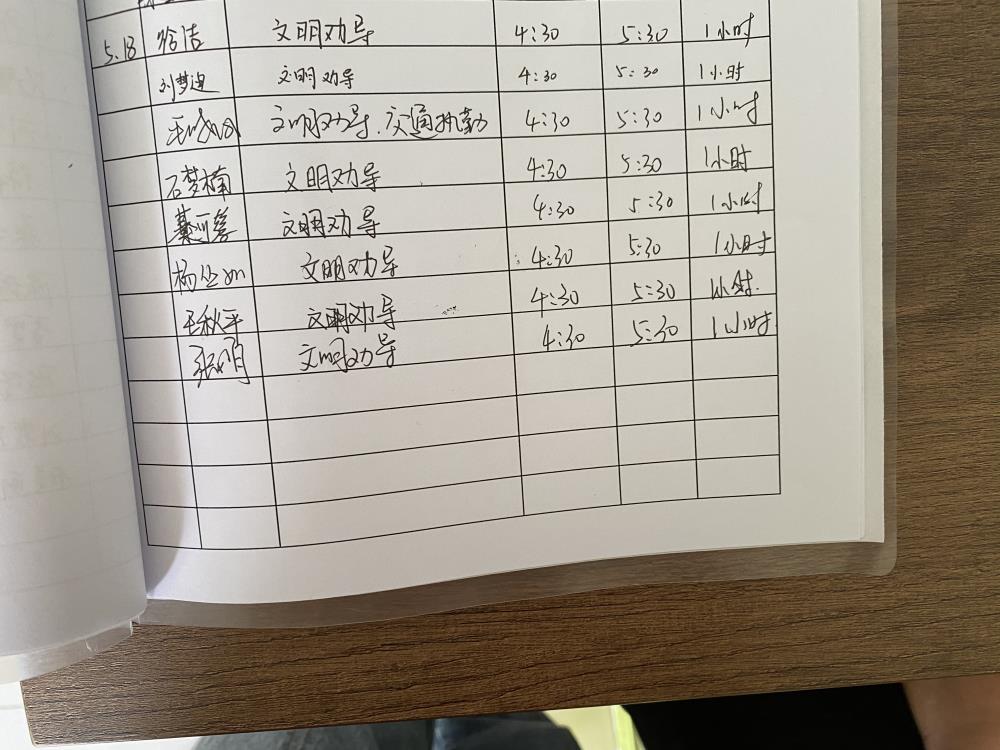 5.18 徐洁 文明劝导 4:30 5:30 1小时
刘梦迪 文明劝导 4:30 5:30 1小时
文明劝导、交通执勤 4:30 5:30 1小时
石梦楠 文明劝导 4:30 5:30 1小时
文明劝导 4:30 5:30 1小时
杨 文明劝导 4:30 5:30 1小时
王秋平 文明劝导 4:30 5:30 1小时
张明 文明劝导 4:30 5:30 1小时